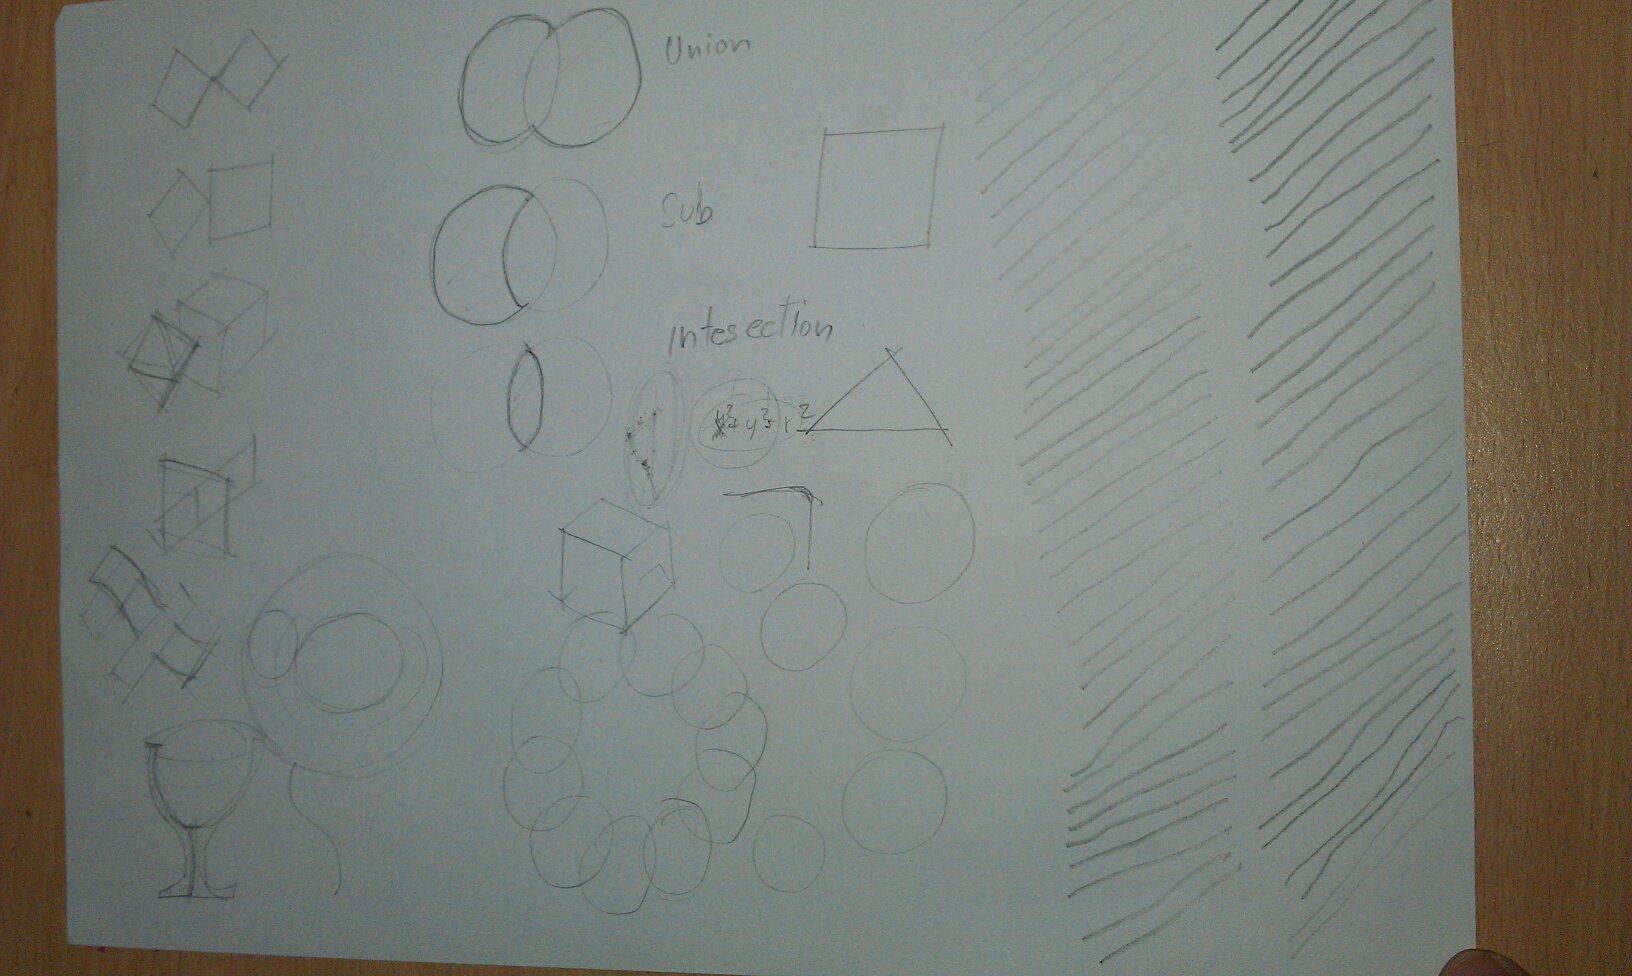 Union
Sub
Intesection
x²+y²=r²